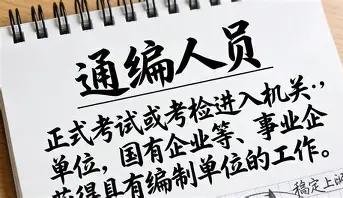 通编人员
正式考试或考检进入机关.,
单位，国有企业等、事业企
获得具有编制单位的工作。
稿定上的